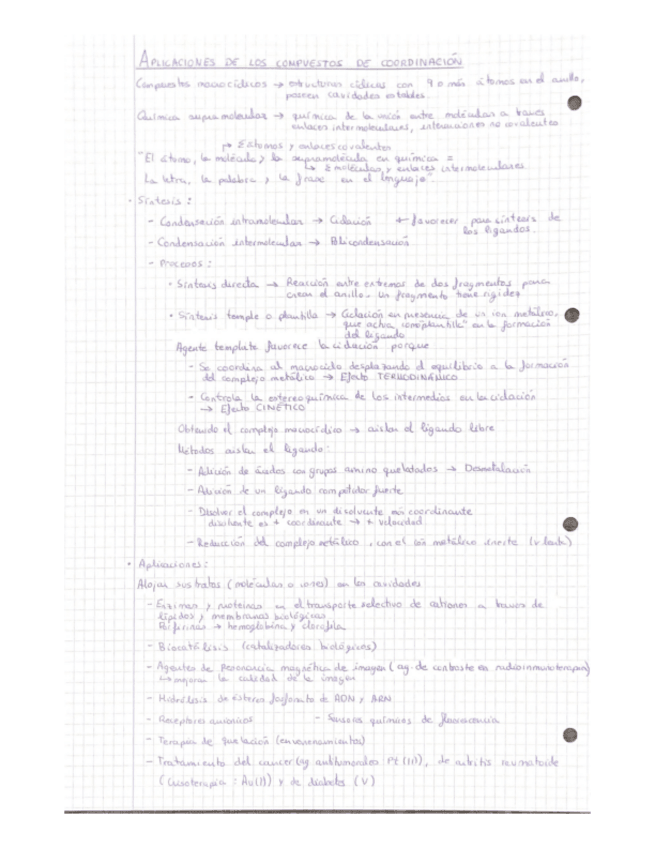 APLICACIONES DE LOS COMPUESTOS DE COORDINACIÓN
Compuestos macrocíclicos → estructuras cíclicas con 9 o más átomos en el anillo,
poseen cavidades estables.
Química supramolecular → química de la unión entre moléculas a través
enlaces intermoleculares, interacciones no covalentes
↱ Σ átomos y enlaces covalentes
"El átomo, la molécula y la supramolécula en química =
↳ Σ moléculas y enlaces intermoleculares
La letra, la palabra y la frase en el lenguaje".
· Síntesis:
- Condensación intramolecular → Ciclación ← favorecer para síntesis de
los ligandos.
- Condensación intermolecular → Policondensación
- Procesos:
· Síntesis directa → Reacción entre extremos de dos fragmentos para
crear el anillo. Un fragmento tiene rigidez
· Síntesis temple o plantilla → Ciclación en presencia de un ion metálico,
que actúa como "plantilla" en la formación
del ligando
Agente template favorece la ciclación porque
- Se coordina al macrociclo desplazando el equilibrio a la formación
del complejo metálico → Efecto TERMODINÁMICO
- Controla la estereoquímica de los intermedios en la ciclación
→ Efecto CINÉTICO
Obtenido el complejo macrocíclico → aislar el ligando libre
Métodos aislar el ligando:
- Adición de ácidos con grupos amino quelatados → Desmetalación
- Adición de un ligando competidor fuerte
- Disolver el complejo en un disolvente más coordinante
disolvente es + coordinante → + velocidad
- Reducción del complejo metálico, con el ión metálico inerte (v lenta)
· Aplicaciones:
Alojar sustratos (moléculas o iones) en las cavidades
- Enzimas y proteínas en el transporte selectivo de cationes a través de
lípidos y membranas biológicas
Porfirinas → hemoglobina y clorofila
- Biocatálisis (catalizadores biológicos)
- Agentes de Resonancia magnética de imagen (ag. de contraste en radioinmunoterapia)
↳ mejorar la calidad de la imagen
- Hidrólisis de ésteres fosfonato de ADN y ARN
- Receptores aniónicos - Sensores químicos de fluorescencia
- Terapia de quelación (envenenamientos)
- Tratamiento del cancer (ag antitumorales Pt (II)), de artritis reumatoide
(Crisoterapia: Au(I)) y de diabetes (V)